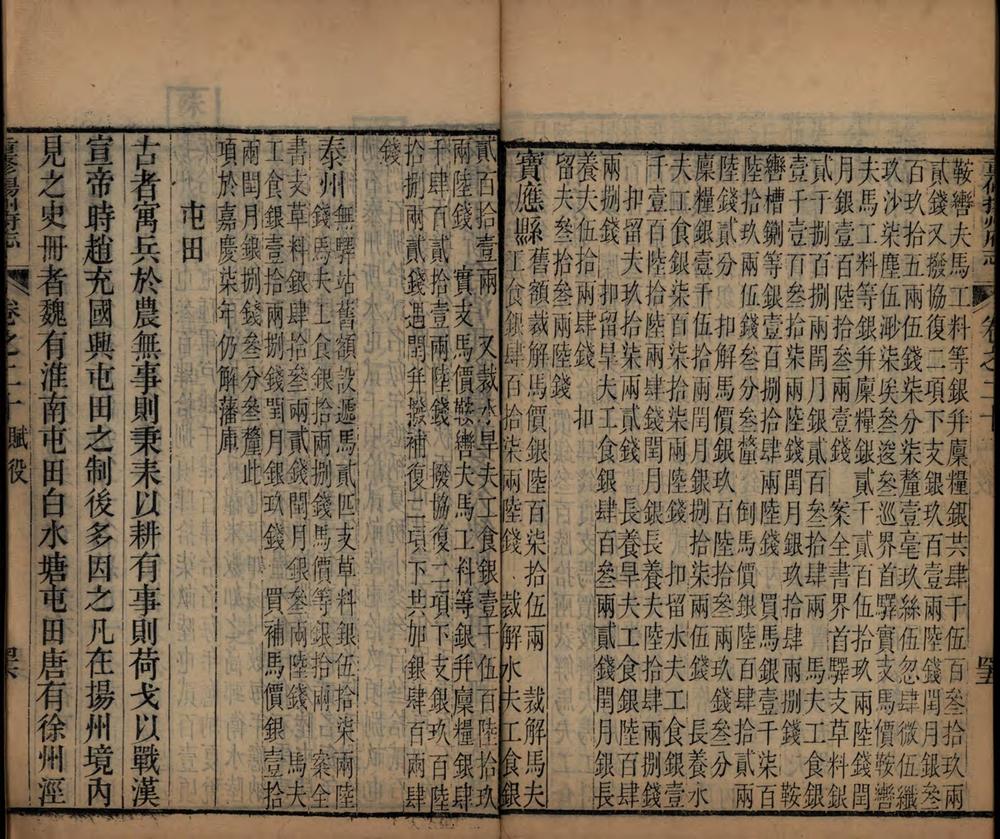 鞍轡夫馬工料等銀幷廩糧銀共肆千伍百叁拾玖兩
貳錢又撥協復二項下支銀玖百壹兩陸錢閏月銀叁
百玖拾五兩伍錢柒分柒釐壹毫玖絲伍忽肆微伍纖
玖沙柒塵伍渺柒埃叁逡叁巡界首驛實支馬價鞍轡
夫馬工料等銀幷廩糧銀貳千貳百伍拾玖兩陸錢閏
月銀壹百陸拾叁兩壹錢 案全書界首驛支草料銀
貳千捌百捌兩閏月銀貳百叁拾肆兩 馬夫工食銀
壹千壹百貳叁拾柒兩陸錢閏月銀玖拾肆兩捌錢 鞍
轡槽鍘等銀壹百捌拾肆兩陸錢 買馬銀壹千柒百
陸拾玖兩伍錢叁分叁釐 倒馬價銀陸百肆拾貳兩
陸錢貳分 扣解馬價銀玖百玖兩玖錢叁分
廩糧銀壹千伍百拾兩閏月銀捌拾柒兩伍錢 長養水
夫工食銀柒百貳拾柒兩陸錢 扣留水夫工食銀壹
千壹百陸拾陸兩肆錢閏月銀長養夫陸拾肆兩捌錢
扣留夫玖拾柒兩貳錢 長養旱夫工食銀陸百肆
兩捌錢 扣留旱夫工食銀肆百叁兩貳錢閏月銀長
養夫伍拾兩肆錢 扣
留夫叁拾叁兩陸錢
寶應縣 舊額裁解馬價銀陸百柒拾伍兩 裁解馬夫
工食銀肆百拾柒兩陸錢 裁解水夫工食銀
貳百拾壹兩 又裁水旱夫工食銀壹千伍百陸拾玖
兩陸錢 實支馬價鞍轡夫馬工料等銀幷廩糧銀肆
千肆百貳拾壹兩陸錢 撥協復二項下支銀玖百陸
拾捌兩貳錢遇閏幷撥補復三項下共加銀肆百兩肆
錢
泰州 無驛站舊額設遞馬貳匹支草料銀伍拾柒兩陸
錢馬夫工食銀拾兩捌錢馬價等銀拾兩 案全
書支草料銀肆拾叁兩貳錢閏月銀叁兩陸錢 馬夫
工食銀壹拾兩捌錢閏月銀玖錢 買補馬價銀壹拾
兩閏月銀捌錢叁分叁釐此
項於嘉慶柒年仍解藩庫
屯田
古者寓兵於農無事則秉耒以耕有事則荷戈以戰漢
宣帝時趙充國興屯田之制後多因之凡在揚州境內
見之史冊者魏有淮南屯田白水塘屯田唐有徐州涇
重修揚州府志 卷之二十 賦役